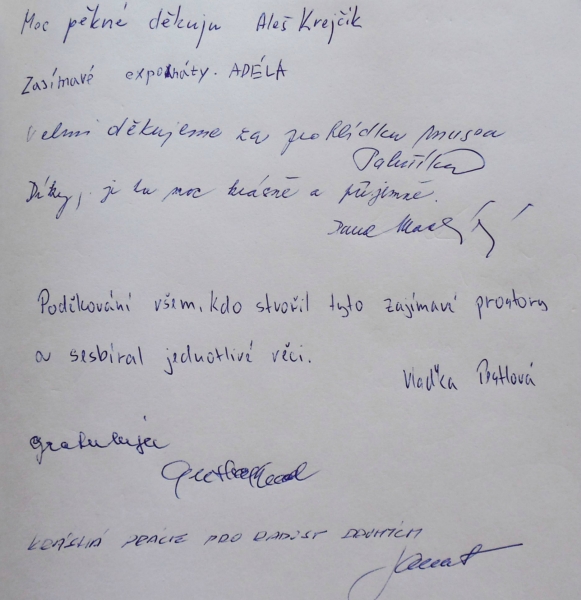 Moc pěkné děkuju Aleš Krejčík
Zasímavé exponáty. ADÉLA
Velmi děkujeme za prohlídku musea
Díky, je tu moc krásně a příjemně.
Jana
Poděkování všem, kdo stvořil tyto zajímavé prostory
a sesbíral jednotlivé věci.
Vlaďka
gratuluji
KRÁSNÁ PRÁCE PRO RADOST DRUHÝCH